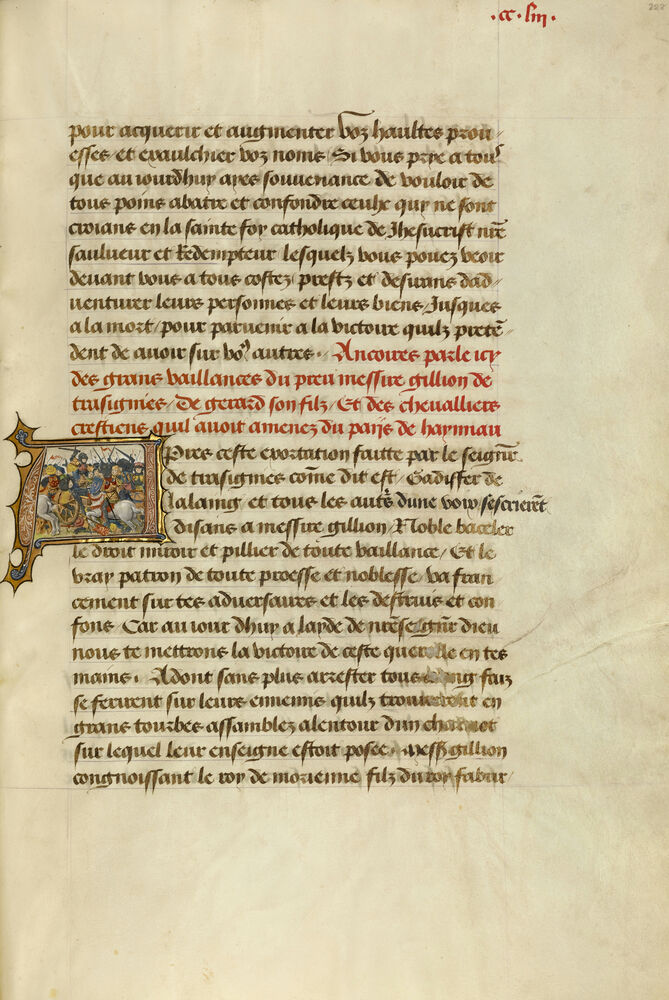 .cc.liii.
pour acquerir et augmenter voz haultes prou-
esses et exaulchier voz noms / Si vous prye a tous
que au iourdhuy ayes souvenance de vouloir de
tous poins abatre et confondre ceulx quy ne sont
croians en la sainte foy catholique de Jhesucrist nr̄e
saulueur et Redempteur lesquelz vous pouez veoir
deuant vous a tous costez / prestz et desirans dad-
uenturer leurs personnes et leurs biens / Jusques
a la mort / pour paruenir a la victoire quilz pretē-
dent de auoir sur vo9 autres. Ancoires parle icy
des grans vaillances du preu messire gillion de
trasignies / De gerard son filz / Et des chevalliers
crestiens quil auoit amenez du paijs de haynnau
Apres ceste exortation faitte par le seignr̄
de trasignies cōme dit est / Gadiffer de
lalaing et tous les autr̄s dune voix sescrierēt
disans a messire gillion / Noble baceler
le droit miroir et pillier de toute vaillance / Et le
vray patron de toute proesse et noblesse / va fran
cement sur tes aduersaires et les destruis et con
fons Car au iour dhuy a layde de nr̄e seignr̄ dieu
nous te mettrons la victoire de ceste querelle en tes
mains. Adont sans plus arrester tous faiz
se ferirent sur leurs ennemis quilz trouuerent en
grans tourbes assemblez alentour dun charriot
sur lequel leur enseigne estoit posee. Mess̄ gillion
congnoissant le roy de morienne filz du roy fabur /